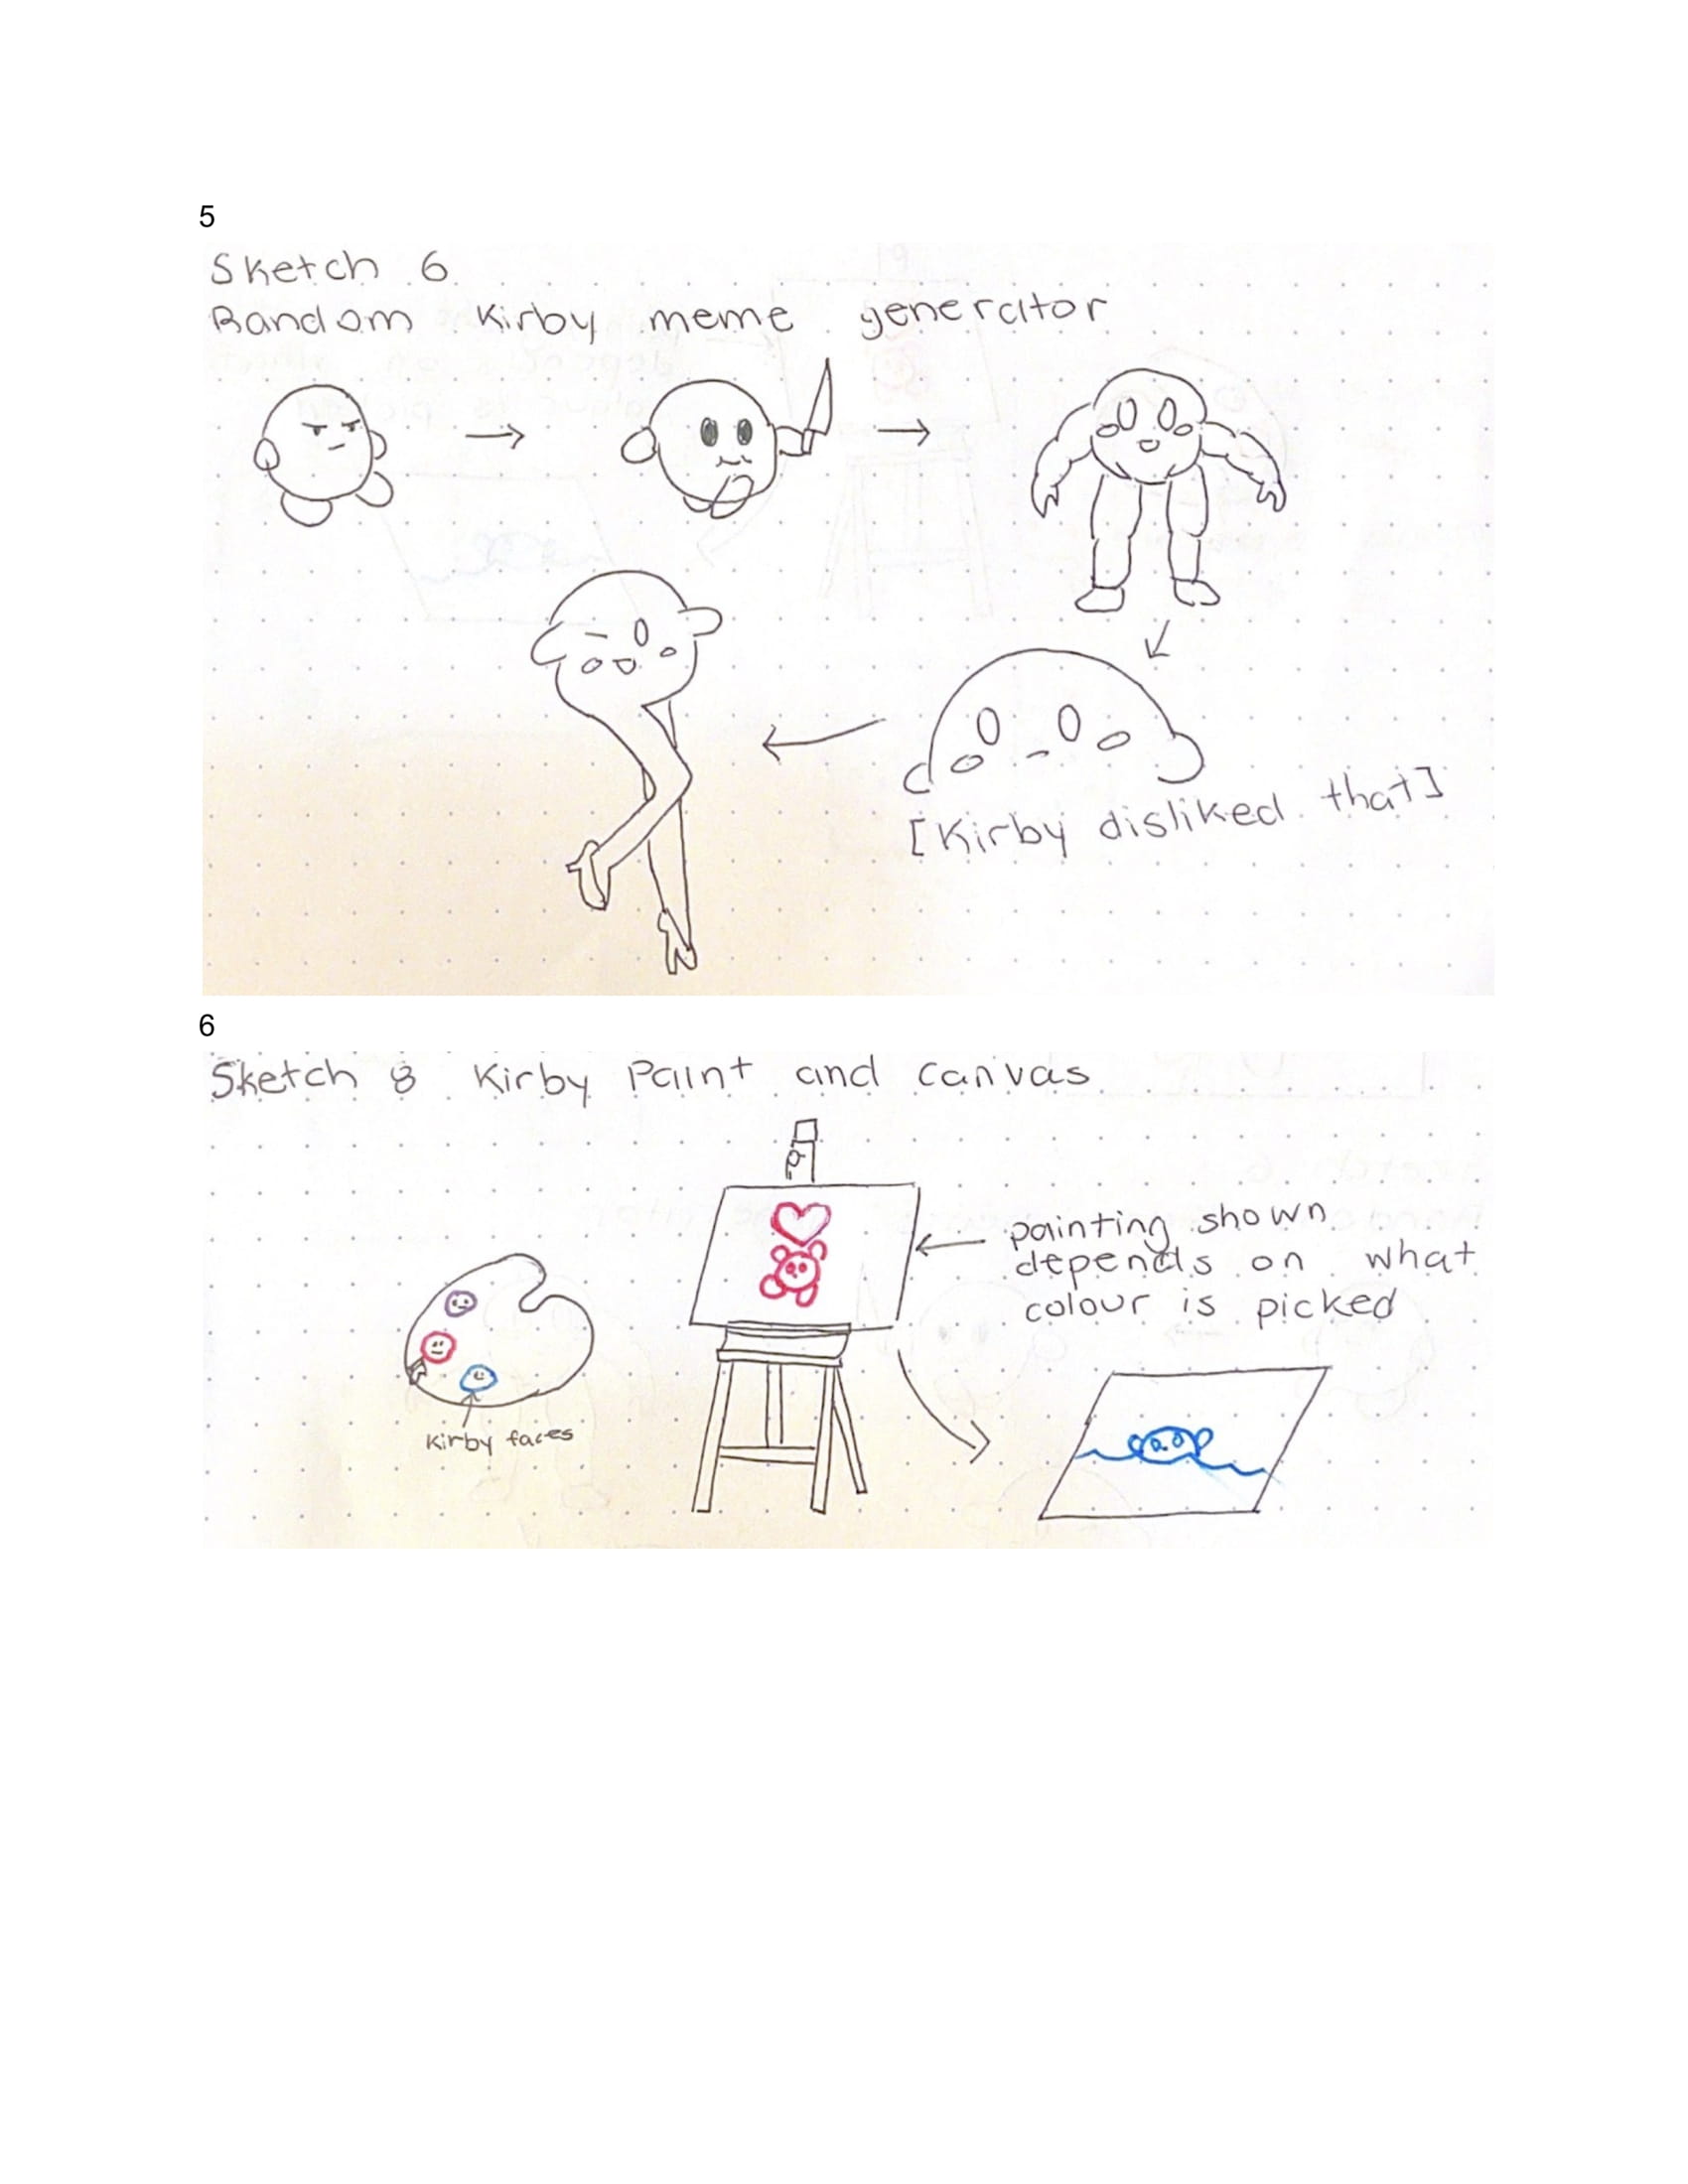 5
Sketch 6
Random Kirby meme generator
[Kirby disliked that]
6
Sketch 8 Kirby Paint and canvas
painting shown
depends on what
colour is picked
Kirby faces